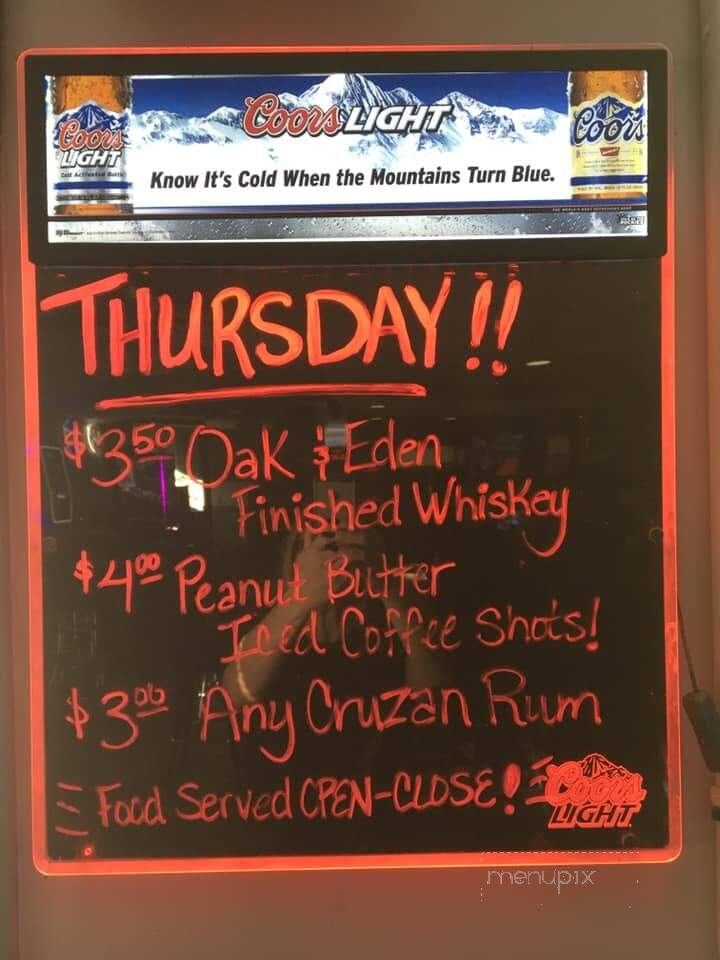 Coors LIGHT
Coors
LIGHT
Cold Activated Bottle
Coors
Know It's Cold When the Mountains Turn Blue.
THURSDAY!!
$3.50 Oak & Eden
Finished Whiskey
$4.00 Peanut Butter
Iced Coffee Shots!
$3.00 Any Cruzan Rum
Food Served OPEN-CLOSE!
Coors
LIGHT
menupix